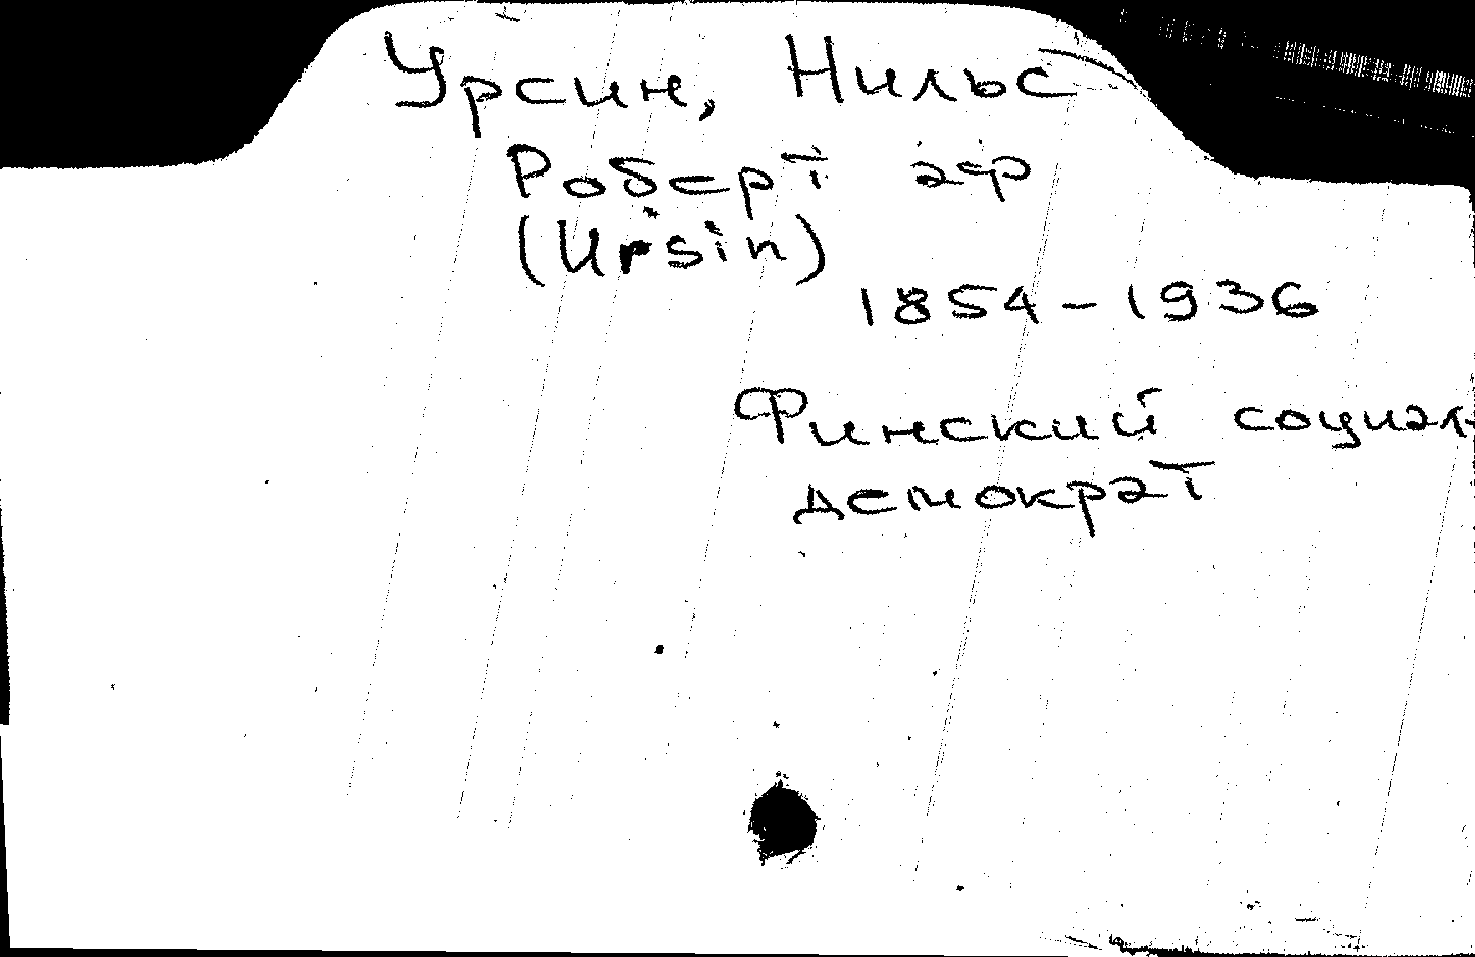 Урсин, Нильс
Роберт аф
(Ursin)
1854-1936
Финский социал-
демократ